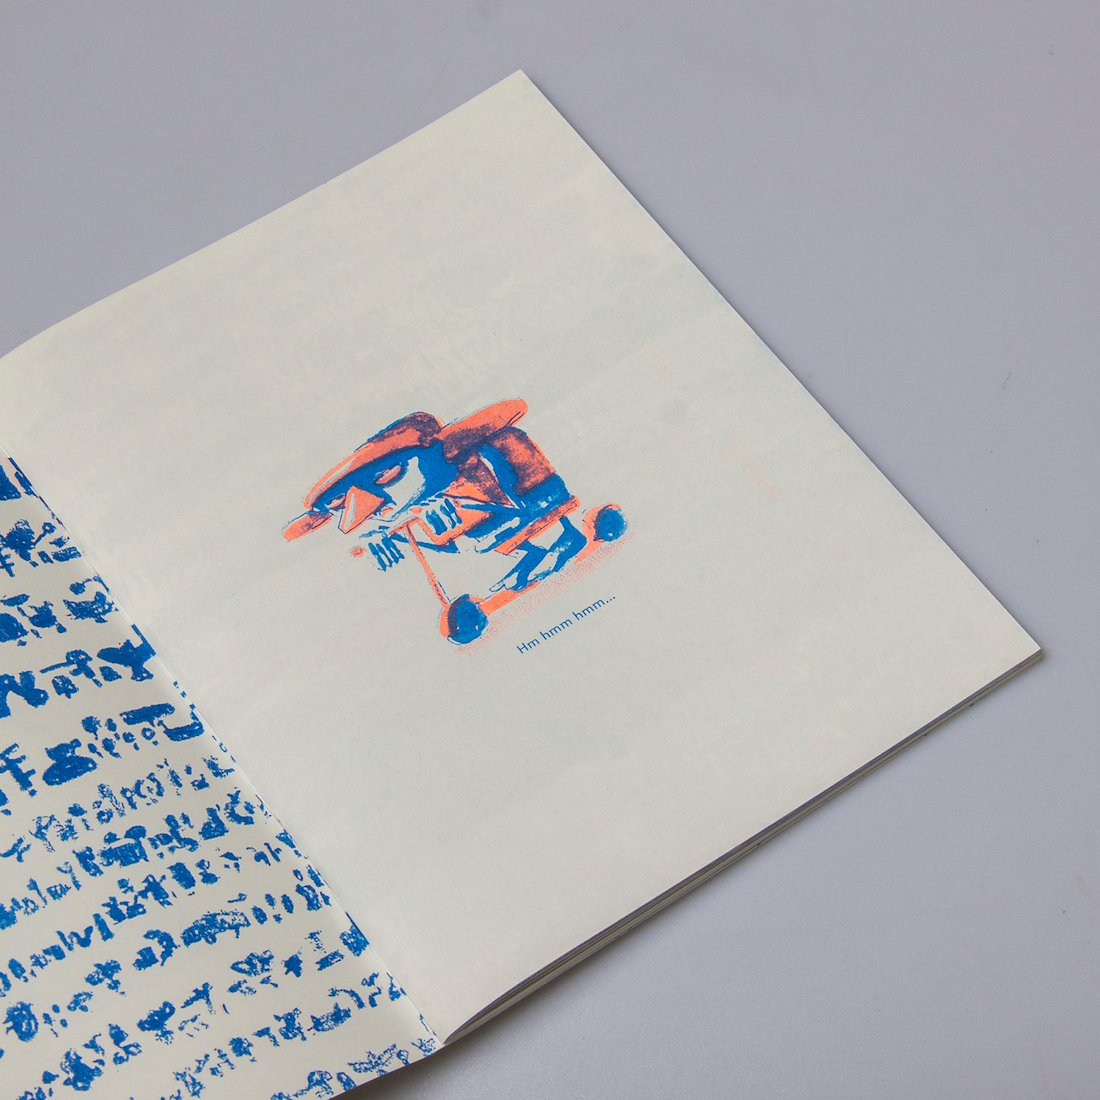 Hm hmm hmm...